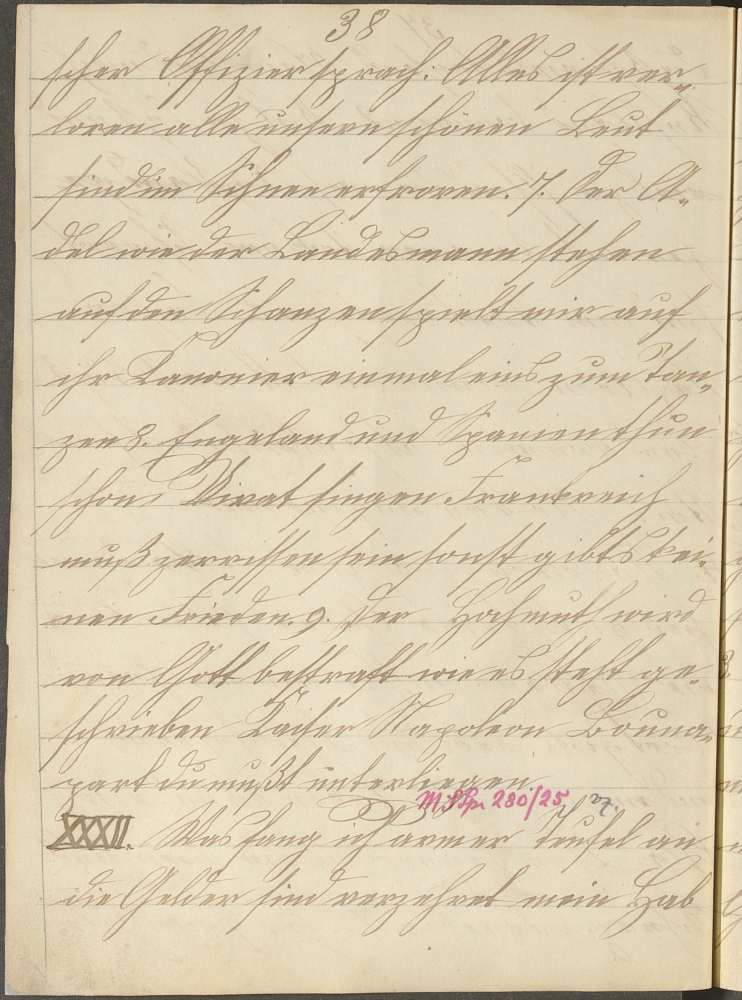 38
scher Offizier sprach: Alles ist ver„
loren alle unsern schönen Leut
sind im Schnee erfroren. 7. Der A„
del wie der Landesmann stehen
auf den Schanzen spielt mir auf
ihr Kanonier einmal eins zum Tan„
zen 8. Engeland und Spanien thun
schon Vivat singen Frankreich
muß zerrissen sein sonst gibts kei„
nen Frieden. 9. Der Hochmuth wird
von Gott bestraft wie es steht ge„
schrieben Kaiser Napoleon Bouna„
part du mußt unterliegen.
M.S.Sp. 280/25
XXXII. Was fang ich armer Teufel an
die Gelder sind verzehret mein Hab